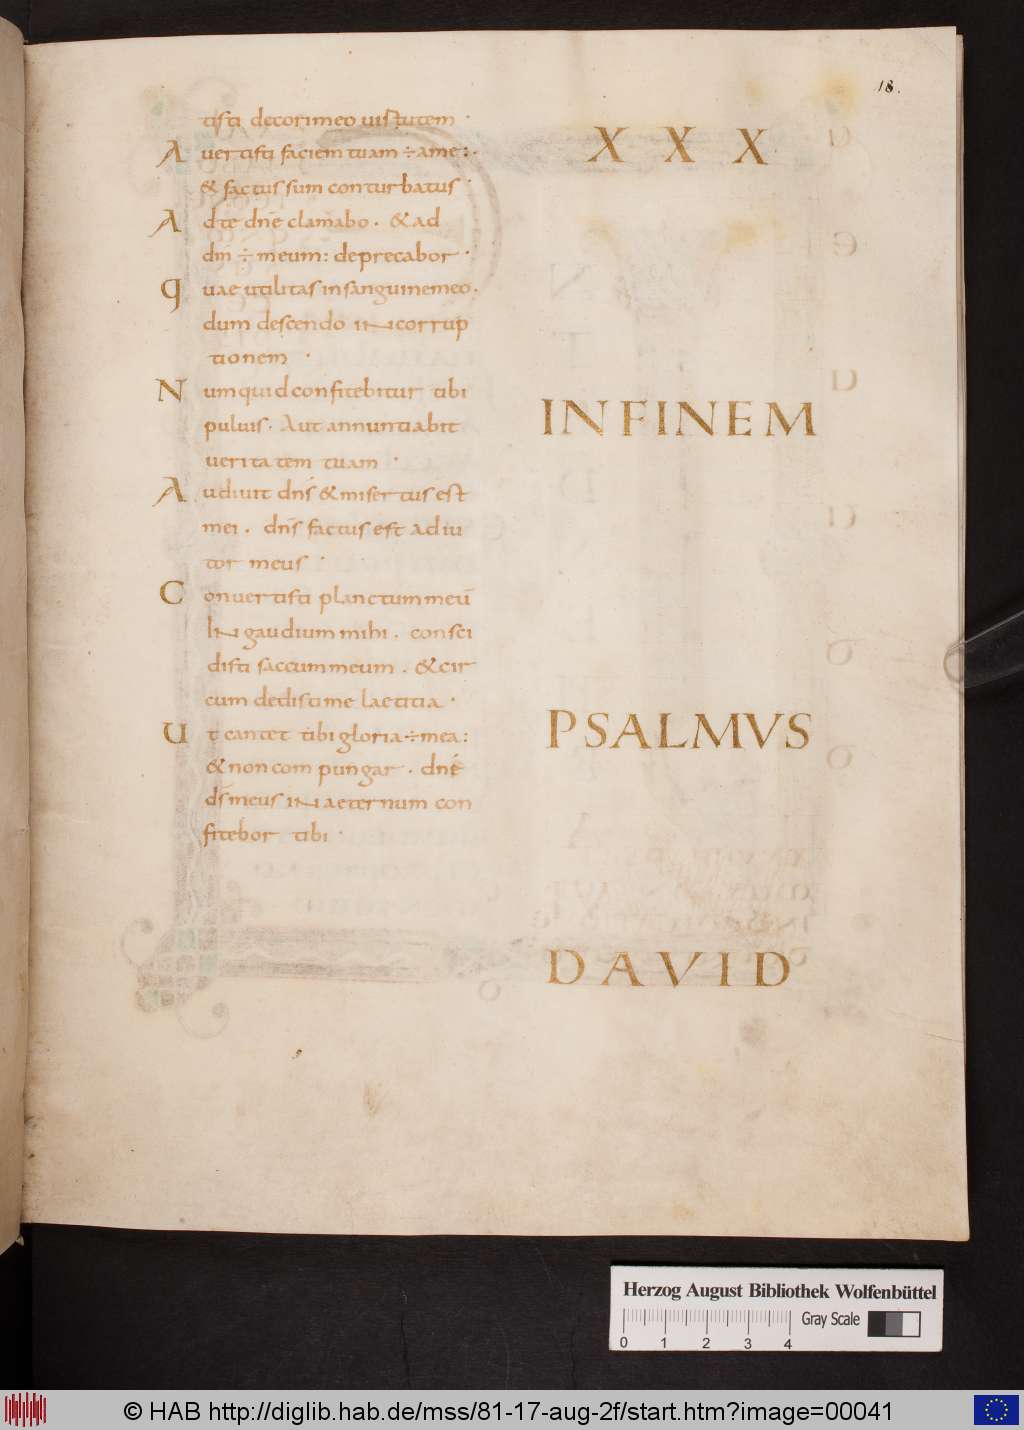 18.
tisti decori meo uirtutem ·
Auertisti faciem tuam ÷ a me : ·
& factus sum conturbatus ·
Ad te dn̄e clamabo · & ad
dm̄ ÷ meum : deprecabor ·
Quae utilitas in sanguine meo ·
dum descendo in corrup
tionem ·
Numquid confitebitur tibi
puluis · Aut annuntiabit
ueritatem tuam ·
Audiuit dn̄s & misertus est
mei · dn̄s factus est adiu
tor meus ·
Conuertisti planctum meū
In gaudium mihi · consci
disti saccum meum · & cir
cum dedisti me laetitia ·
Ut cantet tibi gloria ÷ mea :
& non compungar · dn̄e
ds̄ meus in aeternum con
fitebor tibi ·
X X X
IN FINEM
PSALMVS
DAVID
Herzog August Bibliothek Wolfenbüttel
Gray Scale
0 1 2 3 4
© HAB http://diglib.hab.de/mss/81-17-aug-2f/start.htm?image=00041